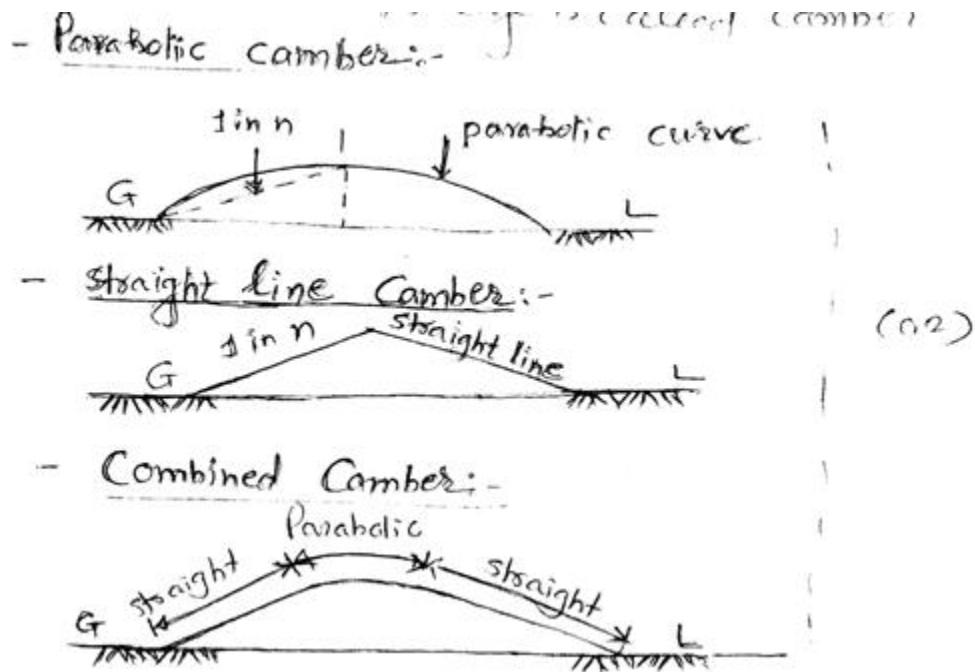 is called camber
- Parabolic camber:-
1 in n
parabolic curve.
G L
- straight line Camber:-
1 in n straight line
G L
(02)
- Combined Camber:-
Parabolic
straight straight
G L